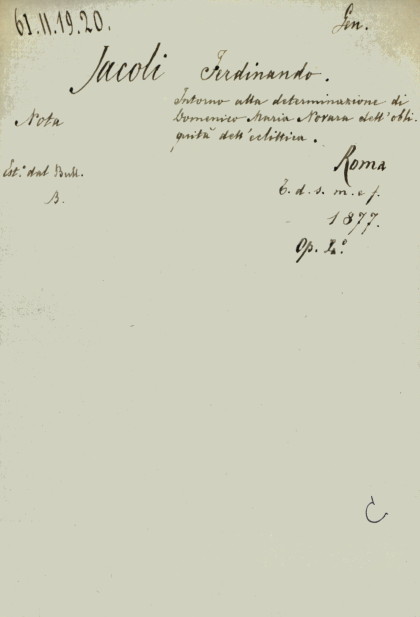 61.11.19.20.
Gen.
Jacoli Ferdinando.
Nota
Intorno alla determinazione di
Domenico Maria Novara dell'obli-
quità dell'eclittica.
Est.º dal Bull.
B.
Roma
T. d. s. m. e f.
1877.
Op. 4.º
C